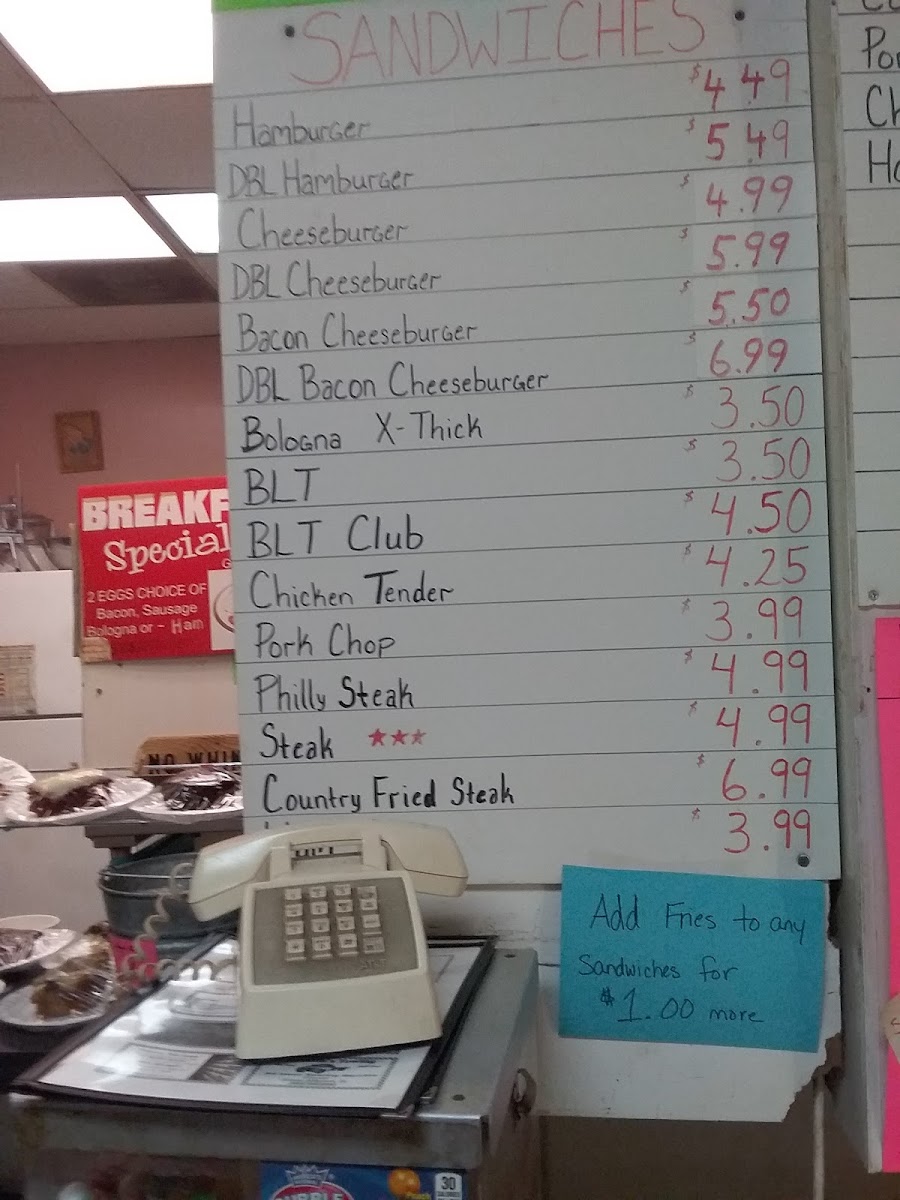 SANDWICHES
Hamburger $4.49
DBL Hamburger $5.49
Cheeseburger $4.99
DBL Cheeseburger $5.99
Bacon Cheeseburger $5.50
DBL Bacon Cheeseburger $6.99
Bologna X-Thick $3.50
BLT $3.50
BLT Club $4.50
Chicken Tender $4.25
Pork Chop $3.99
Philly Steak $4.99
Steak $4.99
Country Fried Steak $6.99
$3.99
Add Fries to any
Sandwiches for
$1.00 more
BREAKF
Special
2 EGGS CHOICE OF
Bacon, Sausage
Bologna or - Ham
NO WHIN
Po
Ch
Ho
30